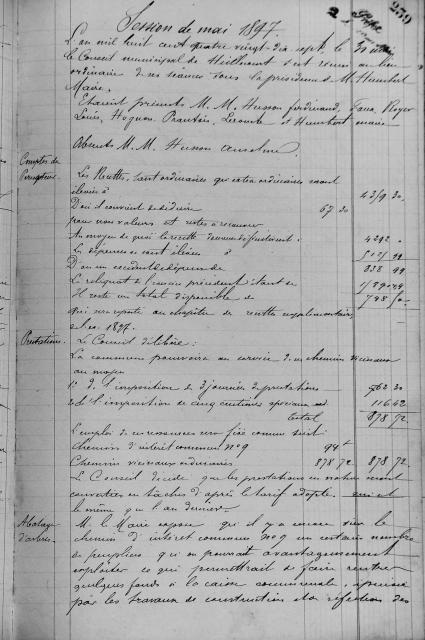 Session de mai 1897.
239
L'an mil huit cent quatre vingt-dix sept, le
le Conseil municipal de s'est réuni au lieu
ordinaire de ses séances sous la présidence de M. Humbert
Maire.
Étaient présents M. M. Husson ferdinand, Royer
Louis, Hognon, et Humbert maire
Absents M. M. Husson Anselme.
Comptes du
Percepteur.
Les Recettes, tant ordinaires que extra ordinaires sont
élevées à 4319 30
D'où il convient de déduire
pour non valeurs et restes à recouvrer 67 30
Au moyen de quoi la recette définitivement : 4252
Les dépenses se sont élevées à
D'où un excédent de dépense de 838 99
Le reliquat de l'exercice précédent étant de
Il reste un total disponible de
qui sera reporté au chapitre des recettes supplémentaires
de 1897.
Prestations.
Le Conseil délibère :
La commune pourvoira au service de ses chemins vicinaux
au moyen
1° de l'imposition de 3 journées de prestations 762 30
2° de l'imposition de cinq centimes spéciaux 116 42
total 878 72
L'emploi de ces ressources sera fixé comme suit
Chemins d'intérêt commun N° 9
Chemins vicinaux ordinaires 878 72
Le Conseil décide que les prestations en nature seront
converties en tâches d'après le tarif adopté
le même que l'an dernier.
Abatage
d'arbres.
M. le Maire expose qu'il y a encore sur le
chemin d'intérêt commun N° 9 un certain nombre
de peupliers qu'on pourrait avantageusement
exploiter ce qui permettrait de faire rentrer
quelques fonds à la caisse communale,
par les travaux de construction et de réfection des